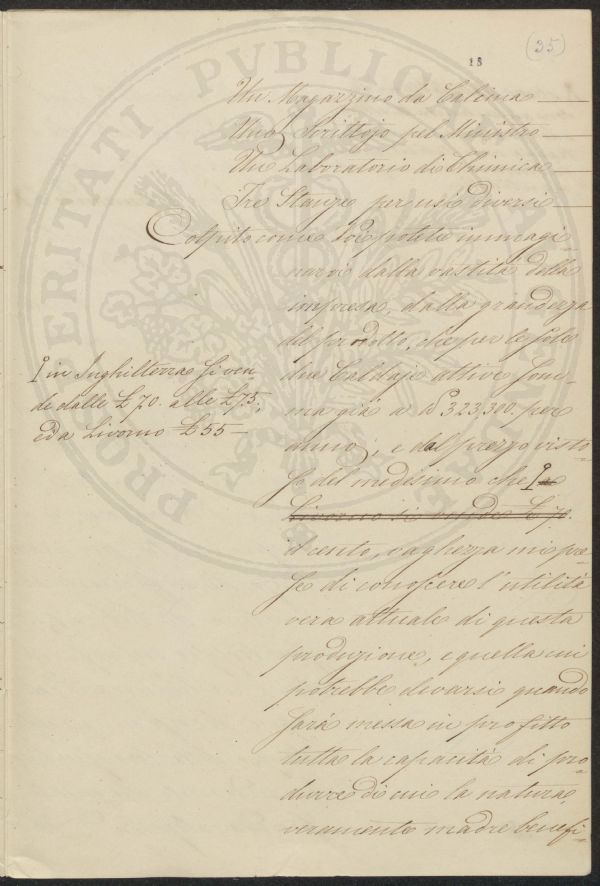 18
(35)
Un Magazzino da Calcina
Uno Scrittojo pel Ministro
Un Laboratorio di Chimica
Tre Stanze per usi diversi
Colpito come Voi potete immagi-
narvi dalla vastità della
impresa, dalla grandezza
del prodotto, che per le sole
due Caldaje attive som-
ma già a lb 323,300. per
anno; e dal prezzo visto-
so del medesimo che
Livorno si vende £ 70
il cento, vaghezza mi pre-
se di conoscere l'utilità
vera attuale di questa
produzione, e quella cui
potrebbe elevarsi quando
sarà messa in profitto
tutta la capacità di pro-
durre di cui la natura,
veramente madre benefi-
in Inghilterra si ven
de dalle £ 70. alle £ 75,
ed a Livorno £ 55 —
PROSPERITATI PVBLICAE